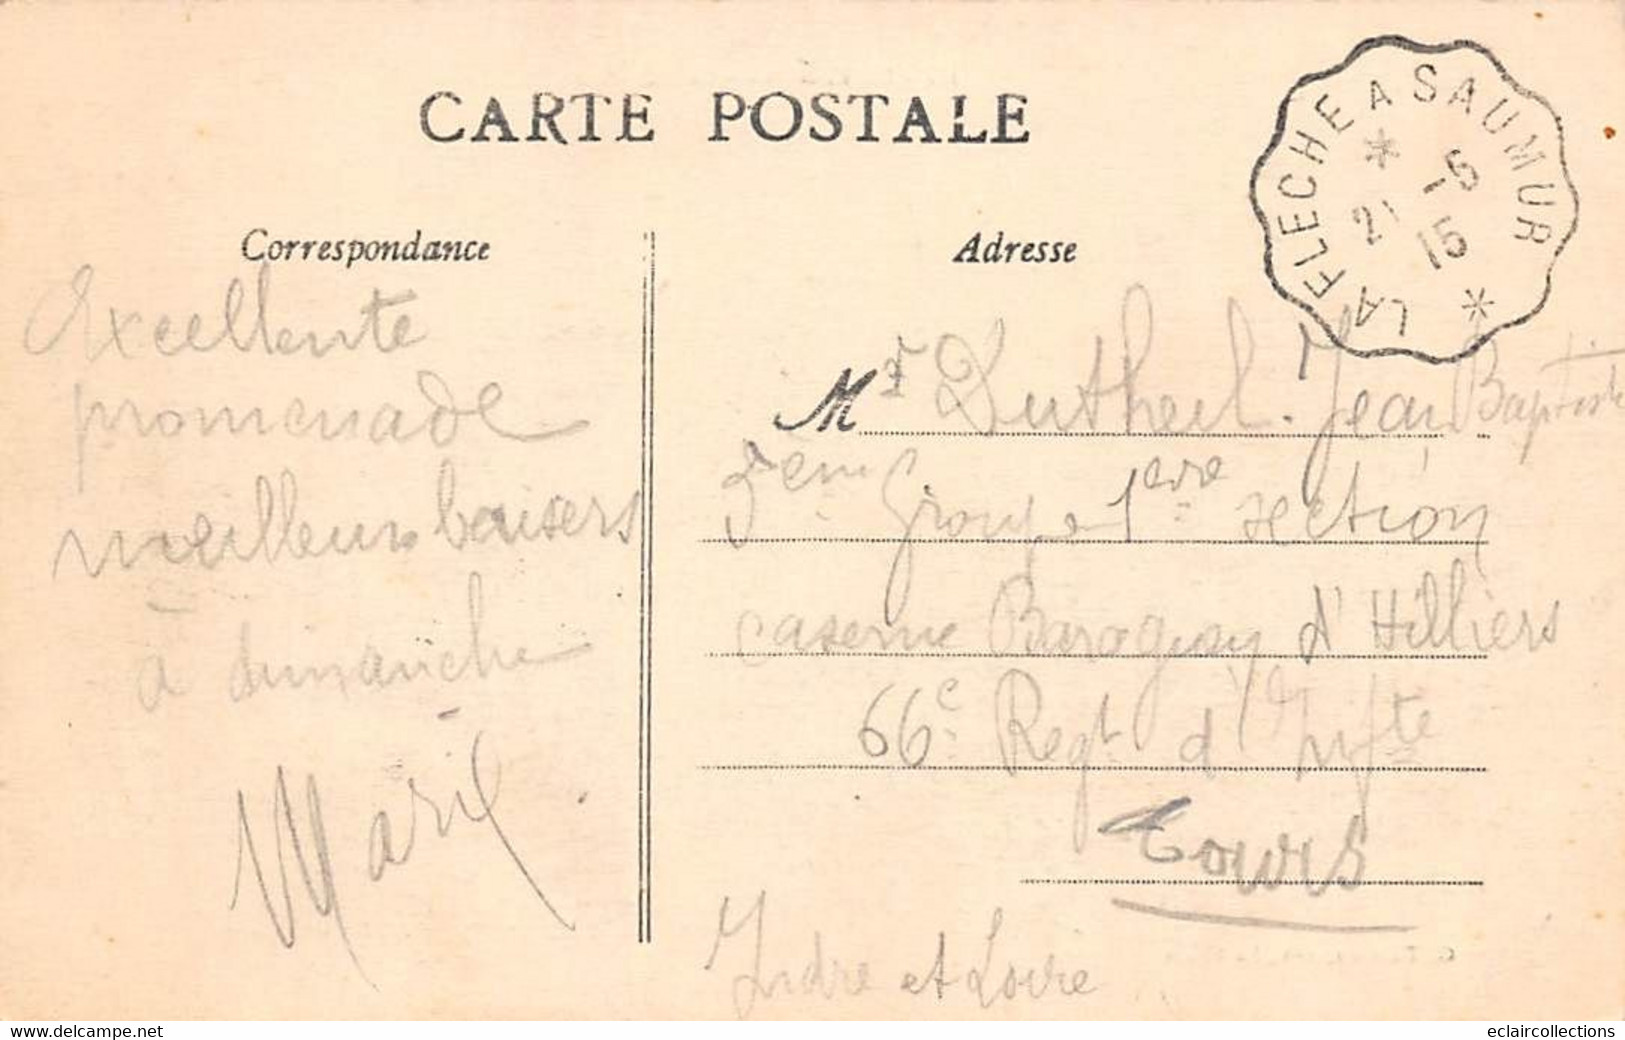 CARTE POSTALE
LA FLECHE A SAUMUR
21 -5
15
Correspondance
Adresse
Excellente
promenade
meilleurs baisers
à dimanche
Marie
Mr Dutheil Jean Baptiste
5eme Groupe 1ere section
caserne Baraguay d'Hilliers
66e Regt d'Infte
Tours
Indre et Loire
eclaircollections